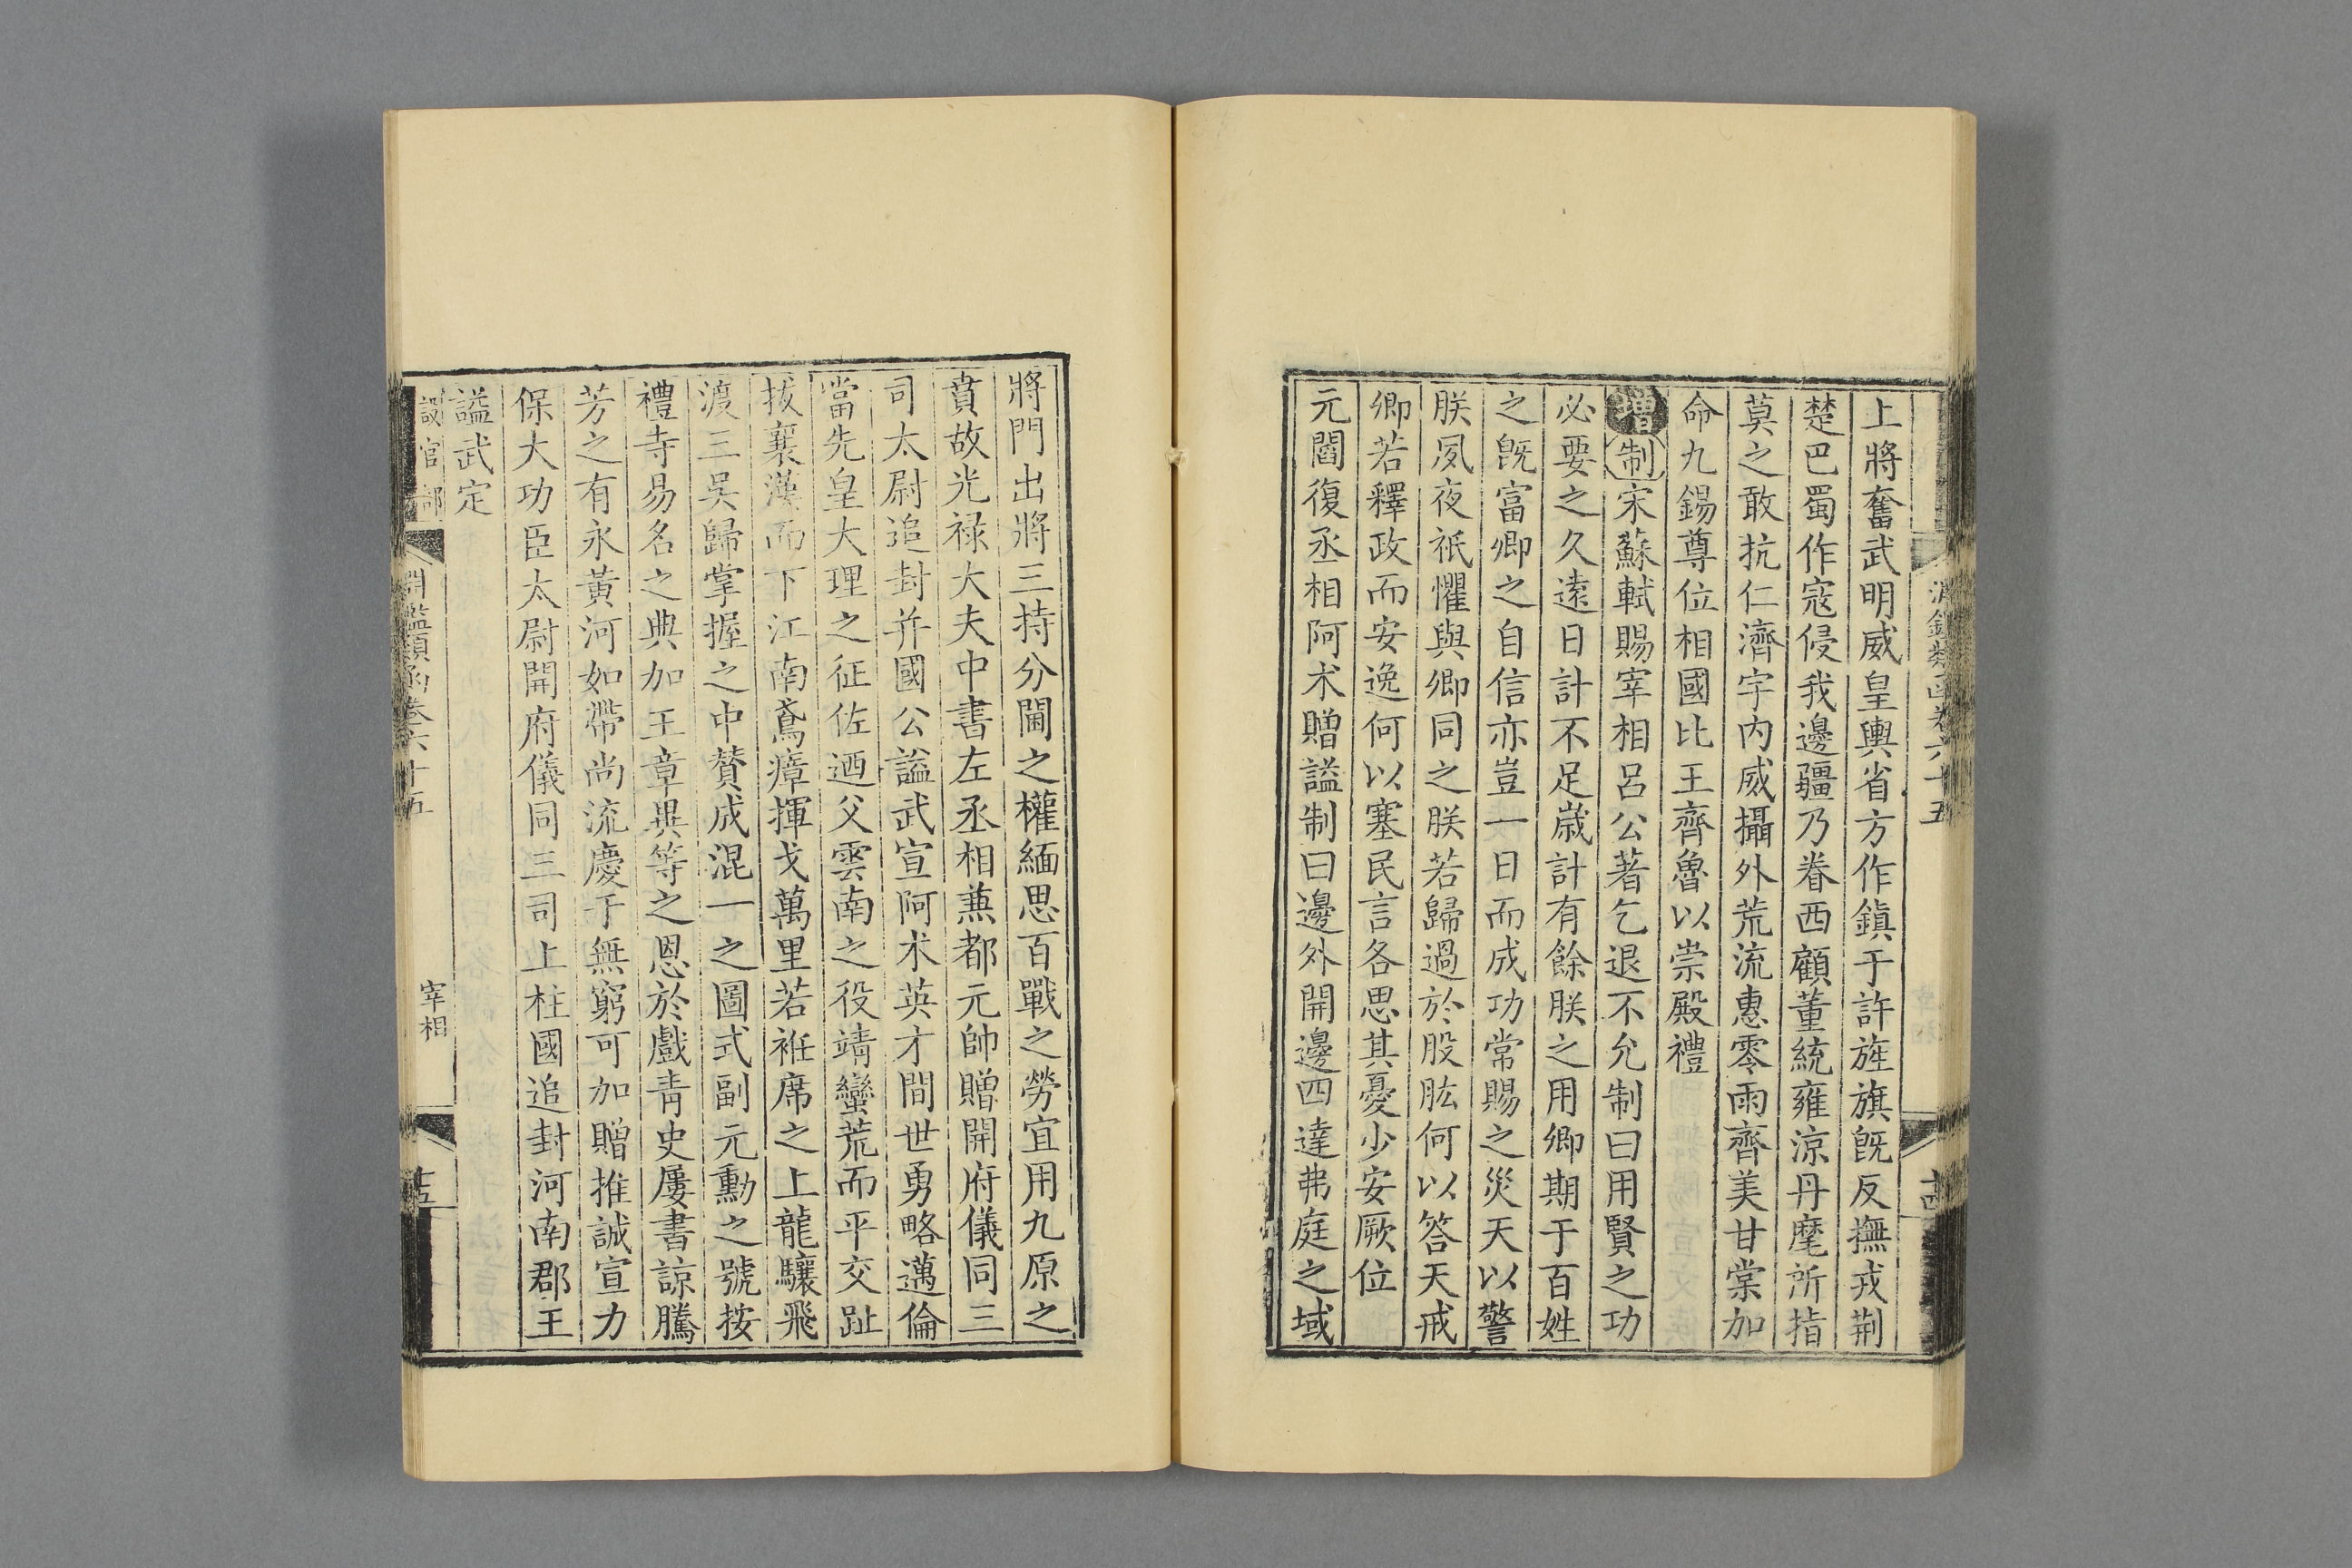 淵鑑類函卷六十五
十四
上將奮武明威皇輿省方作鎮于許旌旗旣反撫戎荆
楚巴蜀作寇侵我邊疆乃眷西顧董統雍涼丹麾所指
莫之敢抗仁濟宇内威攝外荒流惠零雨齊美甘棠加
命九錫尊位相國比王齊魯以崇殿禮
增制宋蘇軾賜宰相呂公著乞退不允制曰用賢之功
必要之久遠日計不足歲計有餘朕之用卿期于百姓
之旣富卿之自信亦豈一日而成功常賜之災天以警
朕夙夜祇懼與卿同之朕若歸過於股肱何以答天戒
卿若釋政而安逸何以塞民言各思其憂少安厥位
元閻復丞相阿术贈諡制曰邊外開邊四達弗庭之域
將門出將三持分閫之權緬思百戰之勞宜用九原之
賁故光祿大夫中書左丞相兼都元帥贈開府儀同三
司太尉追封并國公諡武宣阿术英才間世勇略邁倫
當先皇大理之征佐迺父雲南之役靖蠻荒而平交趾
拔襄漢而下江南鳶瘴揮戈萬里若袵席之上龍驤飛
渡三吳歸掌握之中贊成混一之圖式副元勳之號按
禮寺易名之典加王章異等之恩於戲靑史屢書諒騰
芳之有永黃河如帶尚流慶于無窮可加贈推誠宣力
保大功臣太尉開府儀同三司上柱國追封河南郡王
諡武定
設官部
淵鑑類函卷六十五
宰相
十五